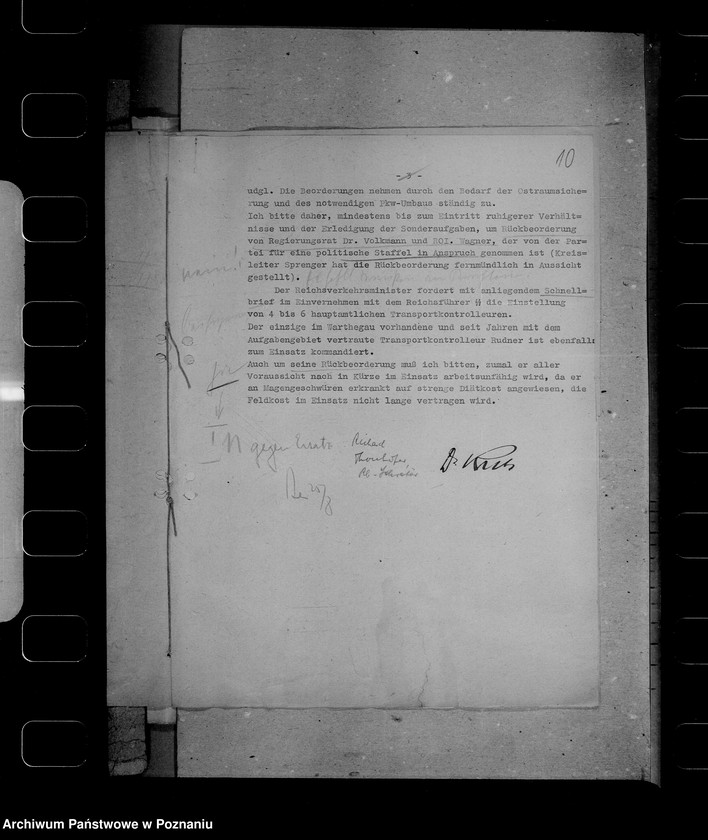 10
-3-
udgl. Die Beorderungen nehmen durch den Bedarf der Ostraumsiche=
rung und des notwendigen Pkw-Umbaus ständig zu.
Ich bitte daher, mindestens bis zum Eintritt ruhigerer Verhält=
nisse und der Erledigung der Sonderaufgaben, um Rückbeorderung
von Regierungsrat Dr. Volkmann und ROI. Wagner, der von der Par=
tei für eine politische Staffel in Anspruch genommen ist (Kreis=
leiter Sprenger hat die Rückbeorderung fernmündlich in Aussicht
gestellt).
nein!
Der Reichsverkehrsminister fordert mit anliegendem Schnell=
brief im Einvernehmen mit dem Reichsführer ᛋᛋ die Einstellung
von 4 bis 6 hauptamtlichen Transportkontrolleuren.
Der einzige im Warthegau vorhandene und seit Jahren mit dem
Aufgabengebiet vertraute Transportkontrolleur Rudner ist ebenfalls
zum Einsatz kommandiert.
Auch um seine Rückbeorderung muß ich bitten, zumal er aller
Voraussicht nach in Kürze im Einsatz arbeitsunfähig wird, da er
an Magengeschwüren erkrankt auf strenge Diätkost angewiesen, die
Feldkost im Einsatz nicht lange vertragen wird.
für
gegen Ersatz
Dr.
Archiwum Państwowe w Poznaniu